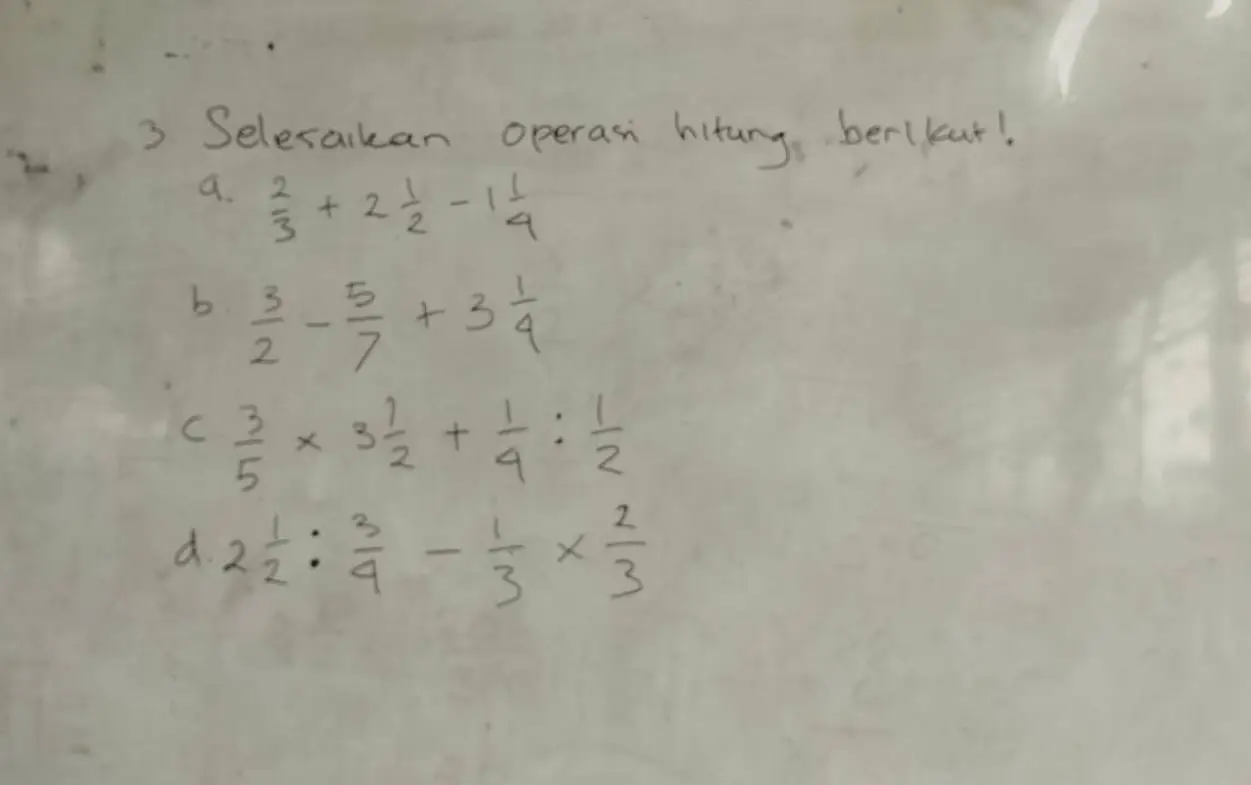 3 Selesaikan operasi hitung berikut!
a. 2/3 + 2 1/2 - 1 1/4
b. 3/2 - 5/7 + 3 1/4
c 3/5 × 3 1/2 + 1/4 : 1/2
d. 2 1/2 : 3/4 - 1/3 × 2/3